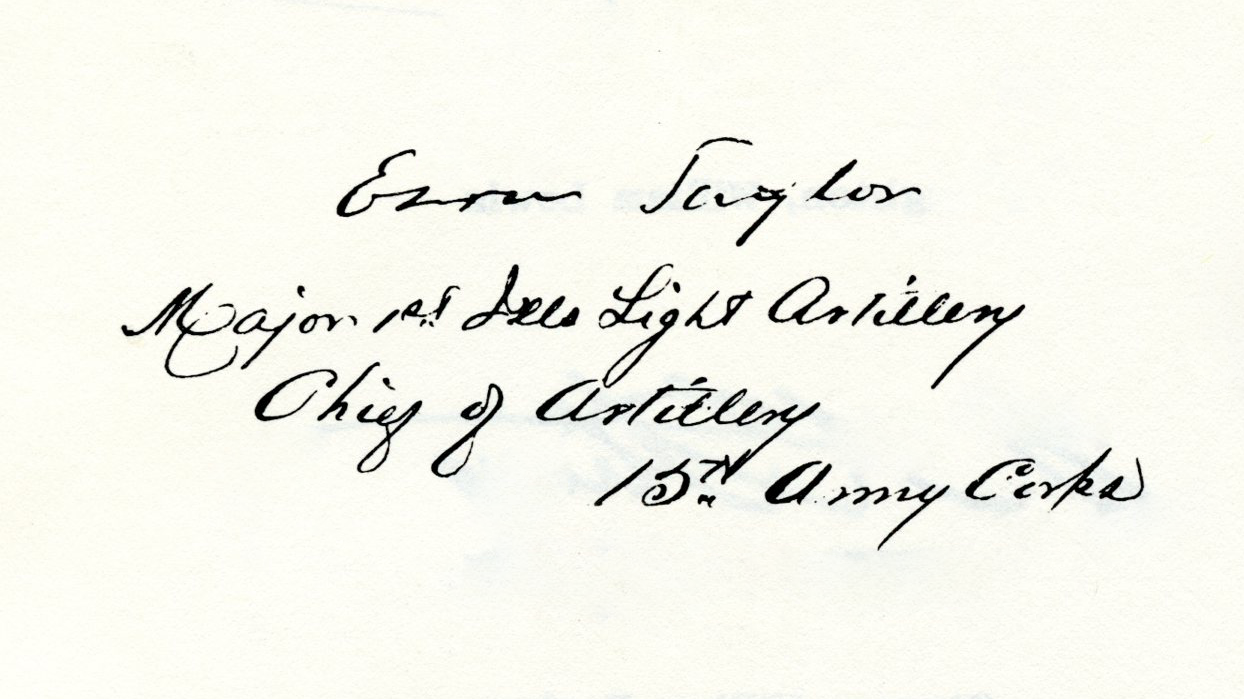 Ezra Taylor
Major 1st Ills Light Artillery
Chief of Artillery
15TH Army Corps